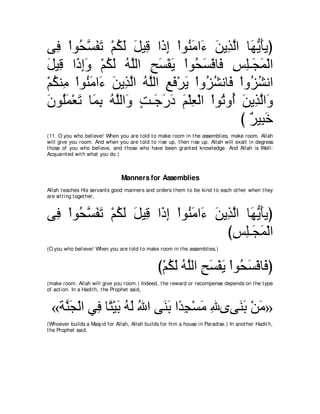 (يأَيُّهَا الَّذِينَ ءَامَنُواْ إِذَا قِيلَ لَكُمْ تَفَسَّحُواْ فِى
الْمَجَـلِسِ فَافْسَحُواْ يَفْسَحِ اللَّهُ لَكُمْ وَإِذَا قِيلَ
انشُزُواْ فَانشُزُواْ يَرْفَعِ اللَّهُ الَّذِينَ ءَامَنُواْ مِنكُمْ
وَالَّذِينَ أُوتُواْ الْعِلْمَ دَرَجَـتٍ وَاللَّهُ بِمَا تَعْمَلُونَ
خَبِيرٌ )
(11. O you who believe! When you are told to make room in the assemblies, make room. Allah
will give you room. And when you are told to rise up, then rise up. Allah will exalt in degrees
those of you who believe, and those who have been granted knowledge. And Allah is Well-
Acquainted with what you do.)
Manners for Assemblies
Allah teaches His servants good manners and orders them to be kind to each other when they
are sitting together,
(يأَيُّهَا الَّذِينَ ءَامَنُواْ إِذَا قِيلَ لَكُمْ تَفَسَّحُواْ فِى
الْمَجَـلِسِ)
(O you who believe! When you are told to make room in the assemblies,)
(فَافْسَحُواْ يَفْسَحِ اللَّهُ لَكُمْ)
(make room. Allah will give you room.) Indeed, the reward or recompense depends on the type
of action. In a Hadith, the Prophet said,
«مَنْ بَنَىىللهِ مَسْجِدًا بَنَى اللهُ لَهُ بَيْتًا فِي الْجَنَّة»
(Whoever builds a Masjid for Allah, Allah builds for him a house in Paradise.) In another Hadith,
the Prophet said,